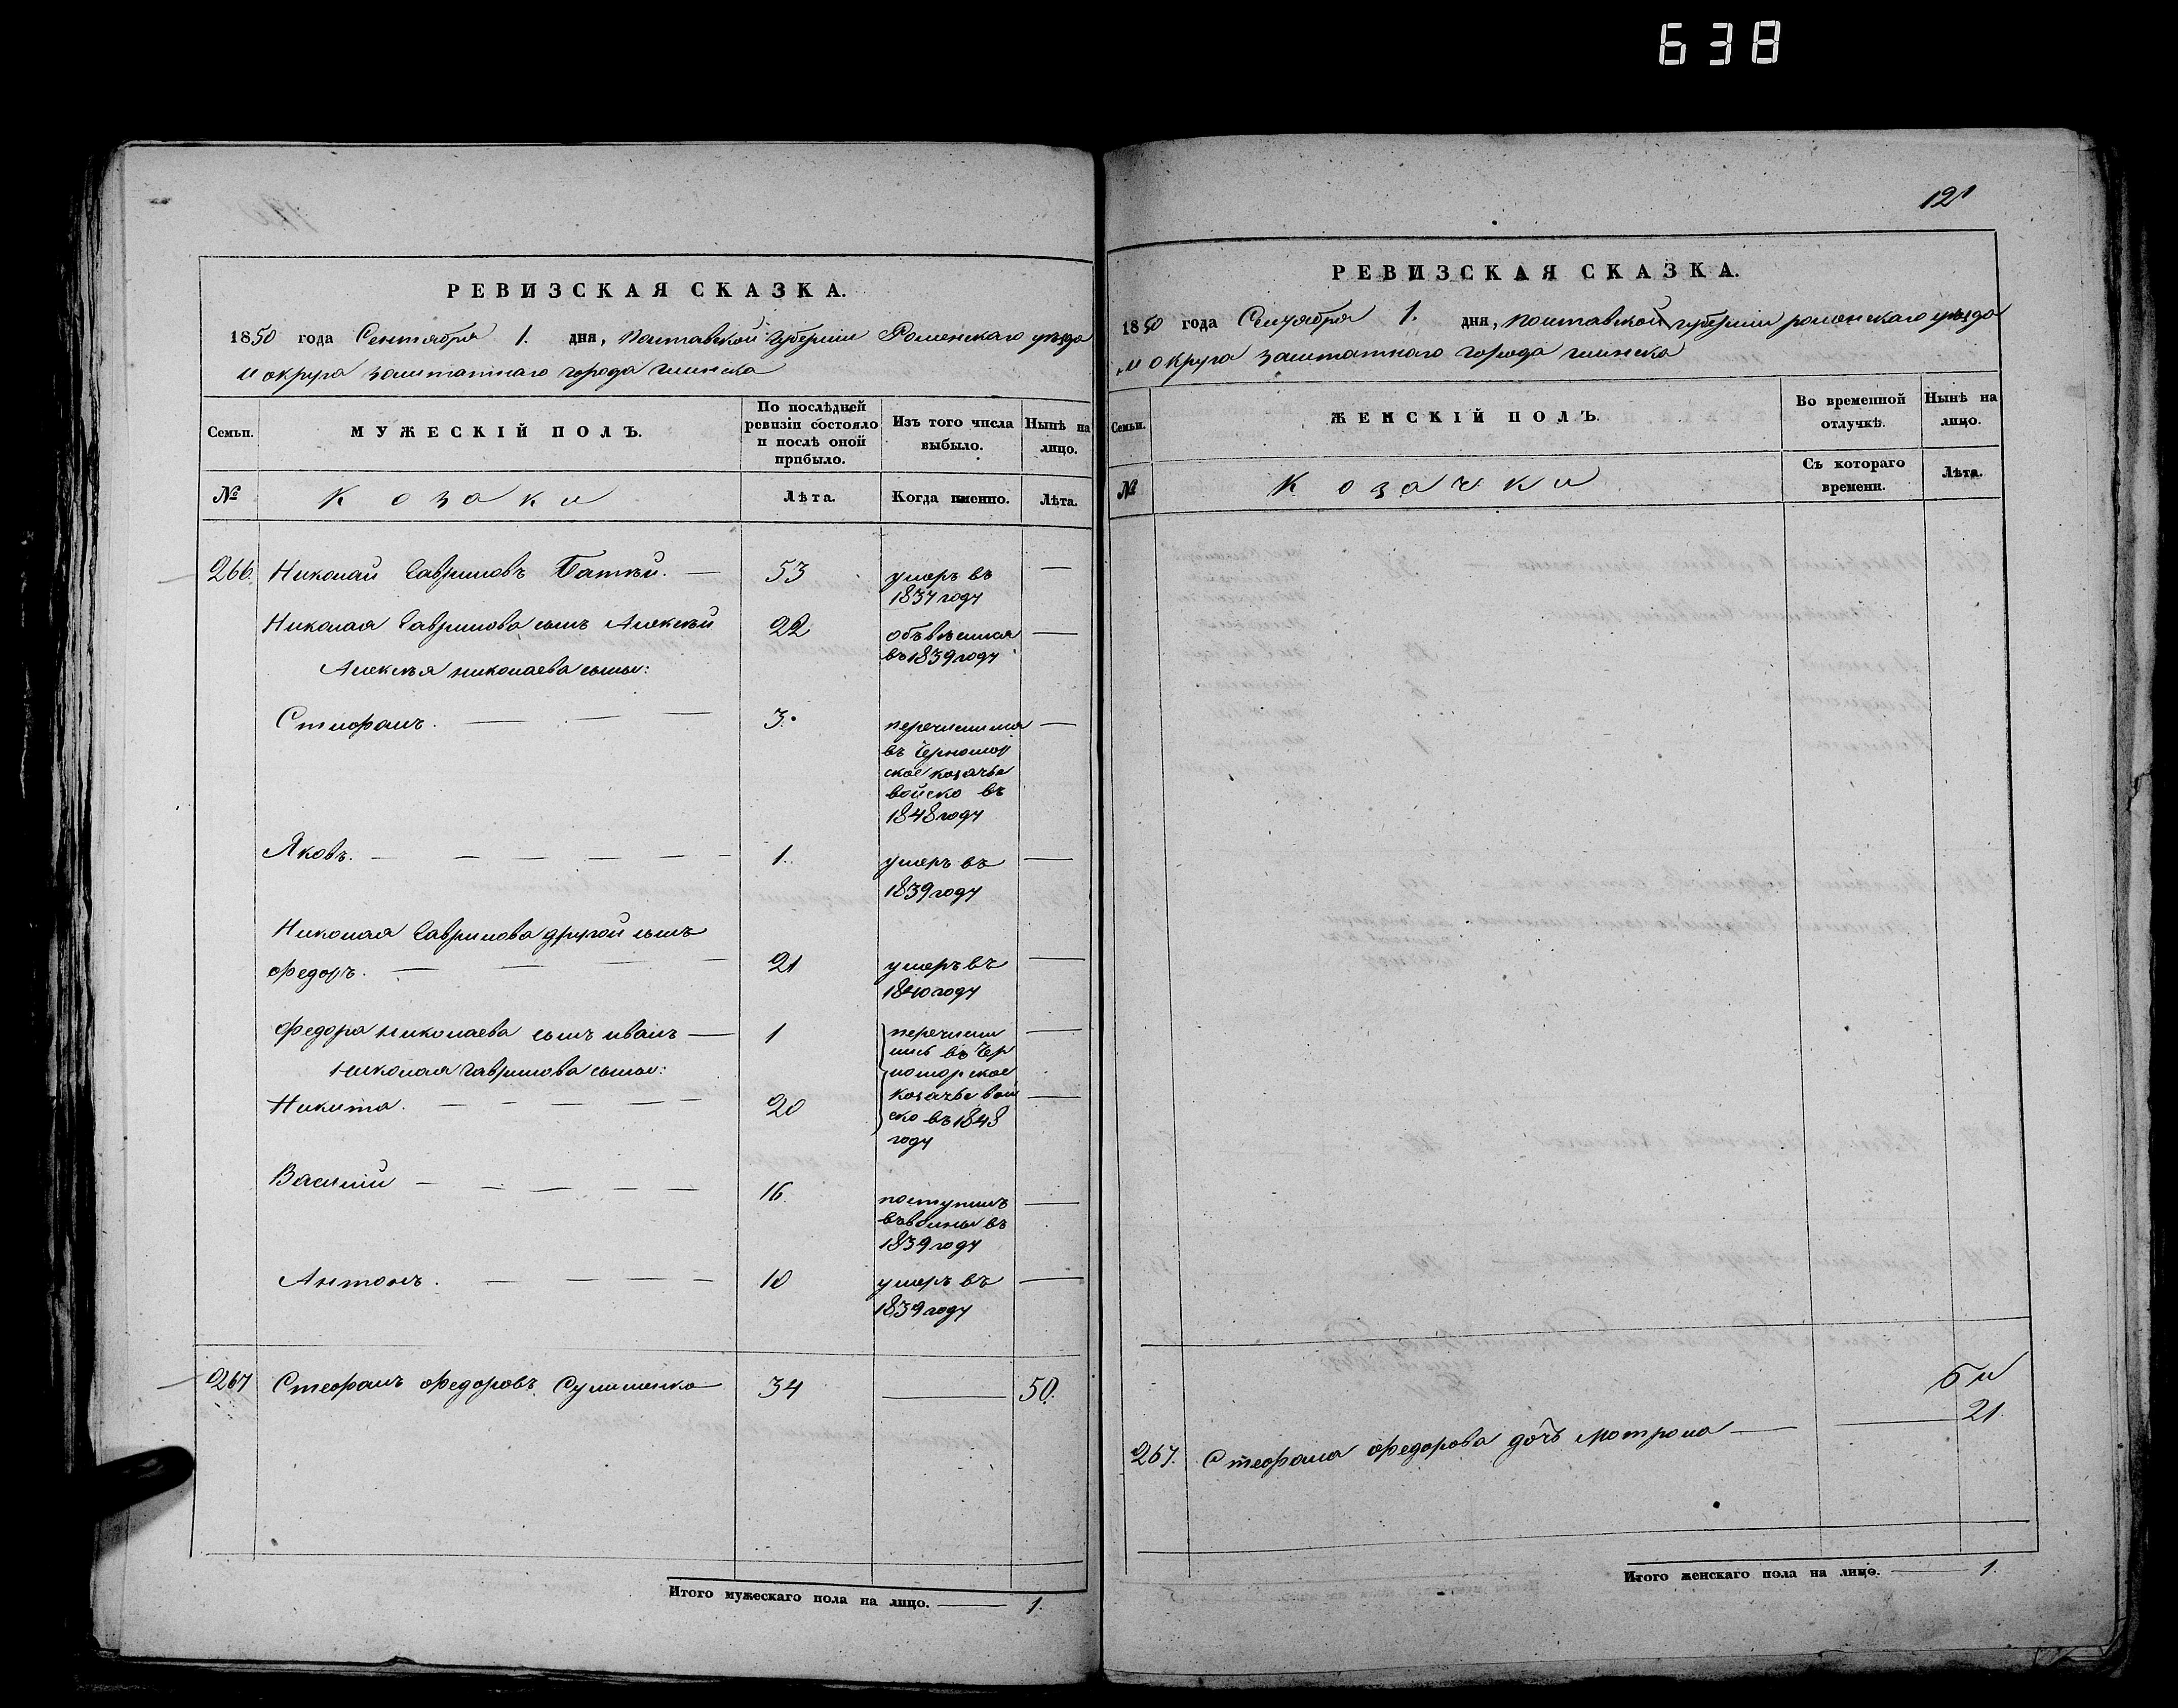 638
РЕВИЗСКАЯ СКАЗКА.
1850 года Сентября 1. дня, Полтавской Губернии Роменскаго уѣзда
и округа заштатнаго города Глинска
Семьи. МУЖЕСКІЙ ПОЛЪ. По послѣдней ревизіи состояло и послѣ оной прибыло. Изъ того числа выбыло. Нынѣ на лицо.
№ Козаки Лѣта. Когда именно. Лѣта.
266. Николай Гавриловъ 53 умеръ въ —
1837 году
Николая Гаврилова сынъ Алексѣй 22 —
въ 1839 году
Алексѣя Николаева сыны:
Стефанъ. — — — 3. перечислился —
въ Черномор
ское козачье
войско въ
1848 году
Яковъ. — — — — — — 1. умеръ въ —
1839 году
Николая Гаврилова другой сынъ
Федоръ. — — — — 21 умеръ въ —
1840 году
Федора Николаева сынъ Иванъ — 1 перечисли —
лись въ Чер
Николая Гаврилова сыны: номорское
Никита. — — — — — 20 козачье вой —
ско въ 1848
году
Василий — — — — — 16. поступилъ —
въ 
1839 году
Антонъ. — — — — 10 умеръ въ —
1839 году
267 Стефанъ Федоровъ Сулименко 34 — 50.
Итого мужескаго пола на лицо. — 1.
121
РЕВИЗСКАЯ СКАЗКА.
1850 года Сентября 1. дня, Полтавской губернии роменскаго уѣзда
и округа заштатнаго города глинска
Семьи. ЖЕНСКІЙ ПОЛЪ. Во временной отлучкѣ. Нынѣ на лицо.
№ Козачки Съ котораго времени. Лѣта.
267. Стефана Федорова дочь Мотрона — — 21.
Итого женскаго пола на лицо. — 1.